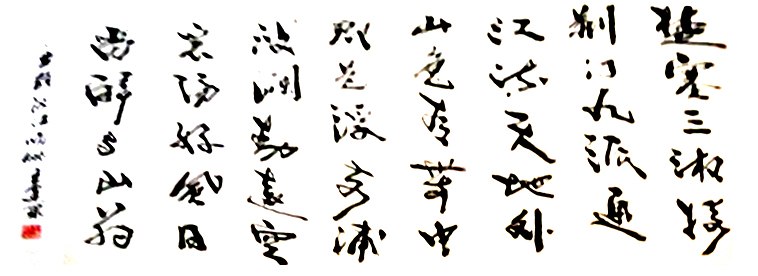 楚塞三湘接
荆门九派通
江流天地外
山色有無中
郡邑浮前浦
波澜動遠空
襄陽好風日
留醉与山翁